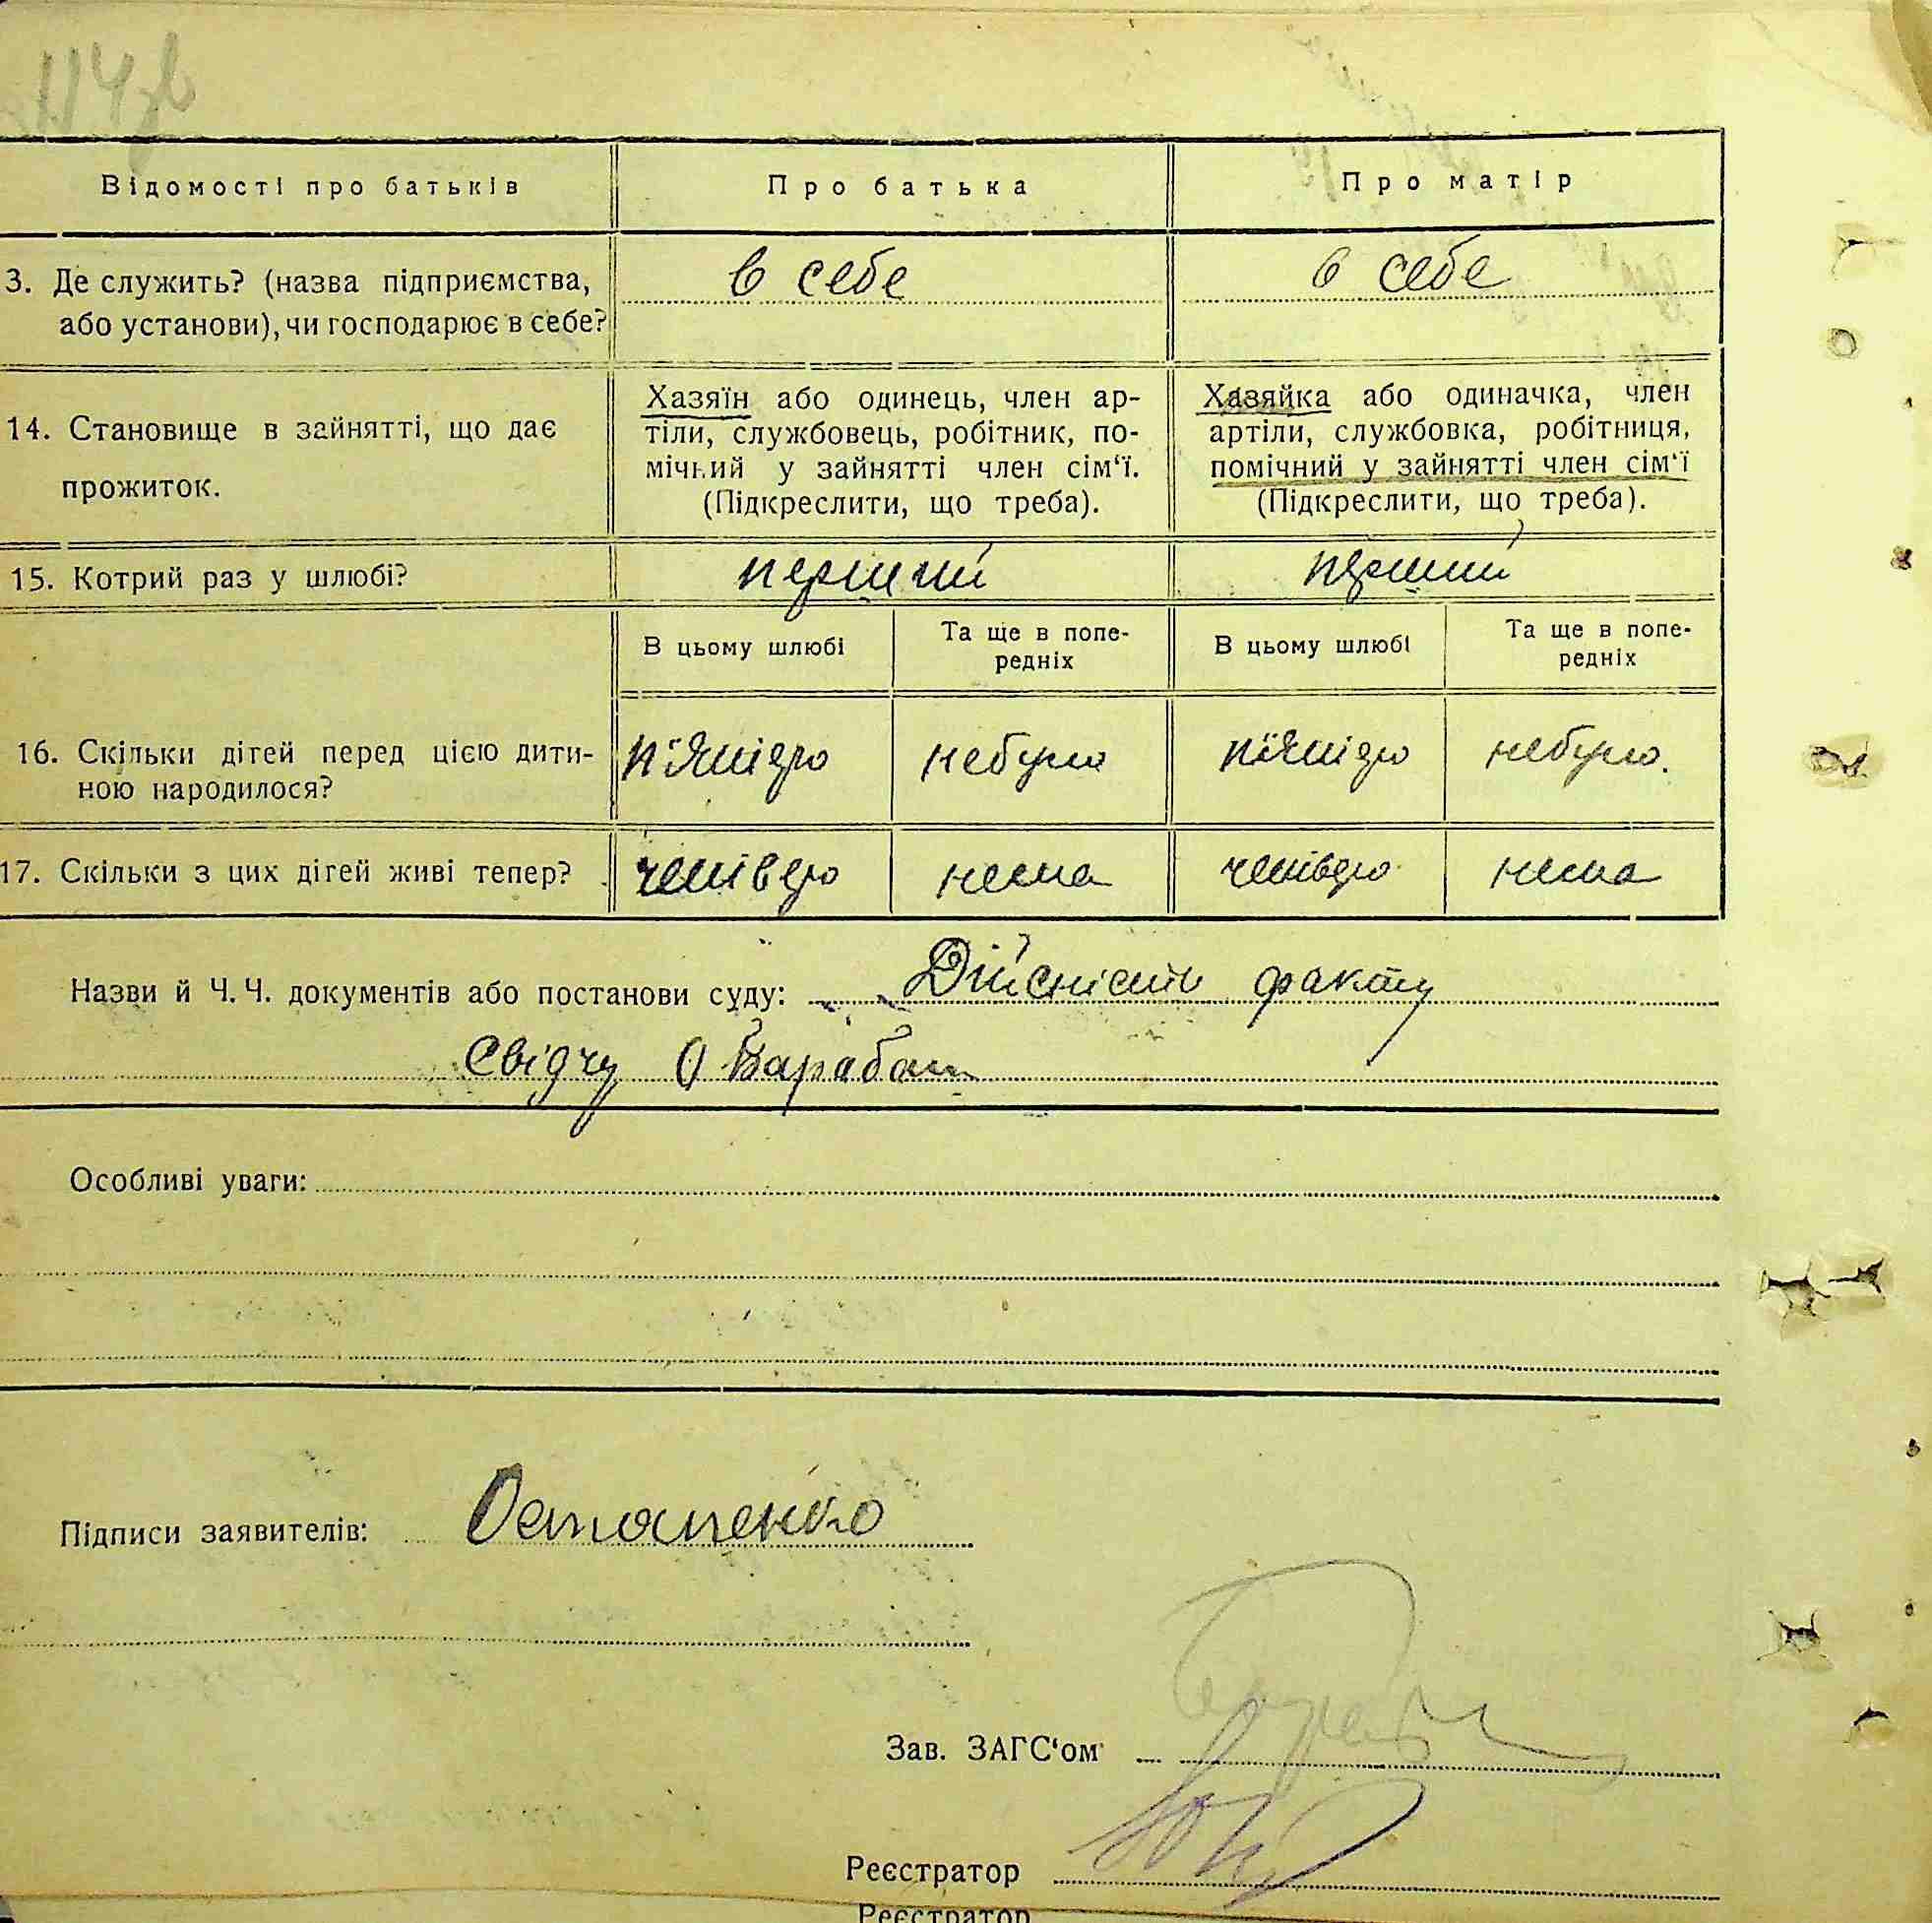 114зв
Відомості про батьків Про батька Про матір
3. Де служить? (назва підприємства, в себе в себе
або установи), чи господарює в себе?
Хазяїн або одинець, член ар- Хазяйка або одиначка, член
14. Становище в зайнятті, що дає тіли, службовець, робітник, по- артіли, службовка, робітниця,
мічний у зайнятті член сім‘ї. помічний у зайнятті член сім‘ї
прожиток. (Підкреслити, що треба). (Підкреслити, що треба).
15. Котрий раз у шлюбі? перший перший
В цьому шлюбі Та ще в попе- В цьому шлюбі Та ще в попе-
редніх редніх
16. Скільки дітей перед цією дити- пʼятідро небуло пʼятідро небуло.
ною народилося?
17. Скільки з цих дітей живі тепер? четвідро нема четвідро нема
Назви й Ч. Ч. документів або постанови суду: Дійсність факту
Свідчу О Барабаш
Особливі уваги:
Підписи заявителів: Остапенко
Зав. ЗАГС‘ом
Реєстратор
Реєстратор